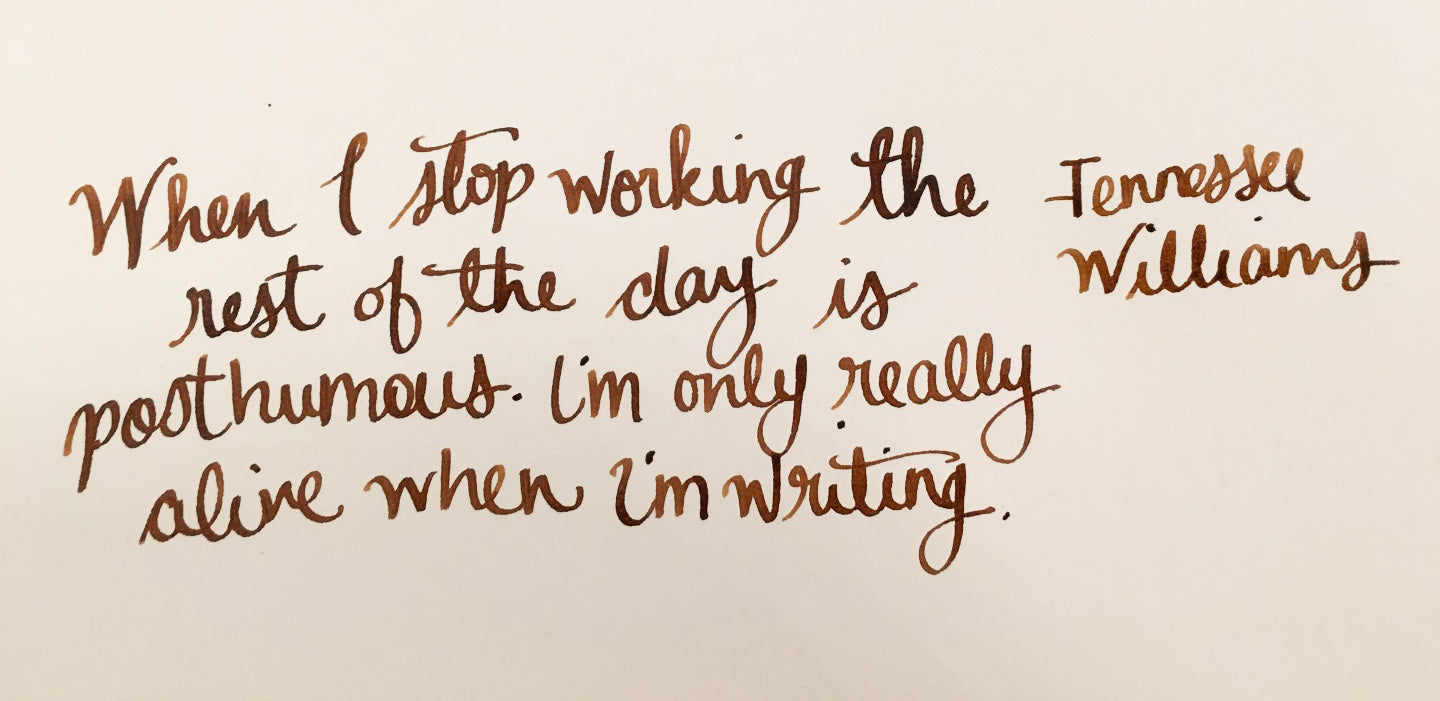 When I stop working the
rest of the day is
posthumous. I'm only really
alive when I'm writing.
Tennessee
Williams